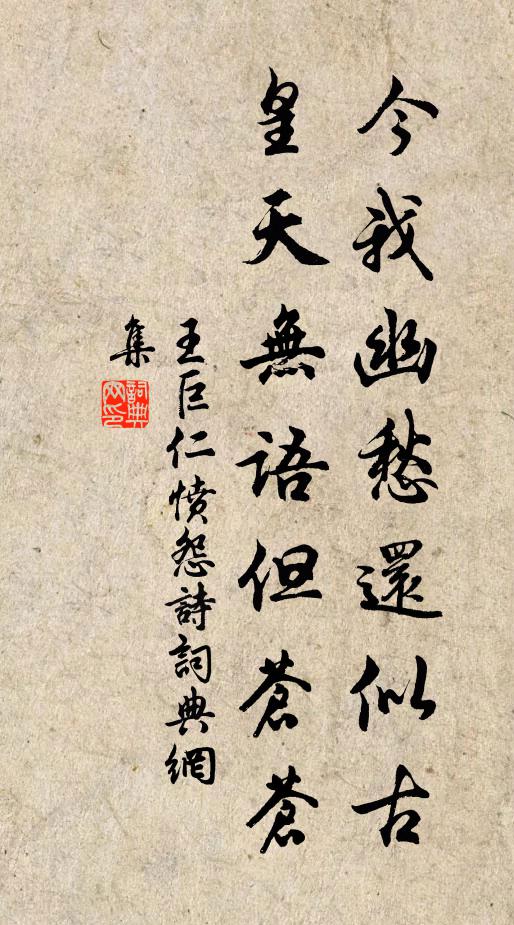 今我幽愁還似古
皇天無語但蒼蒼
王巨仁憤怨詩詞典網
集
詞典
网印